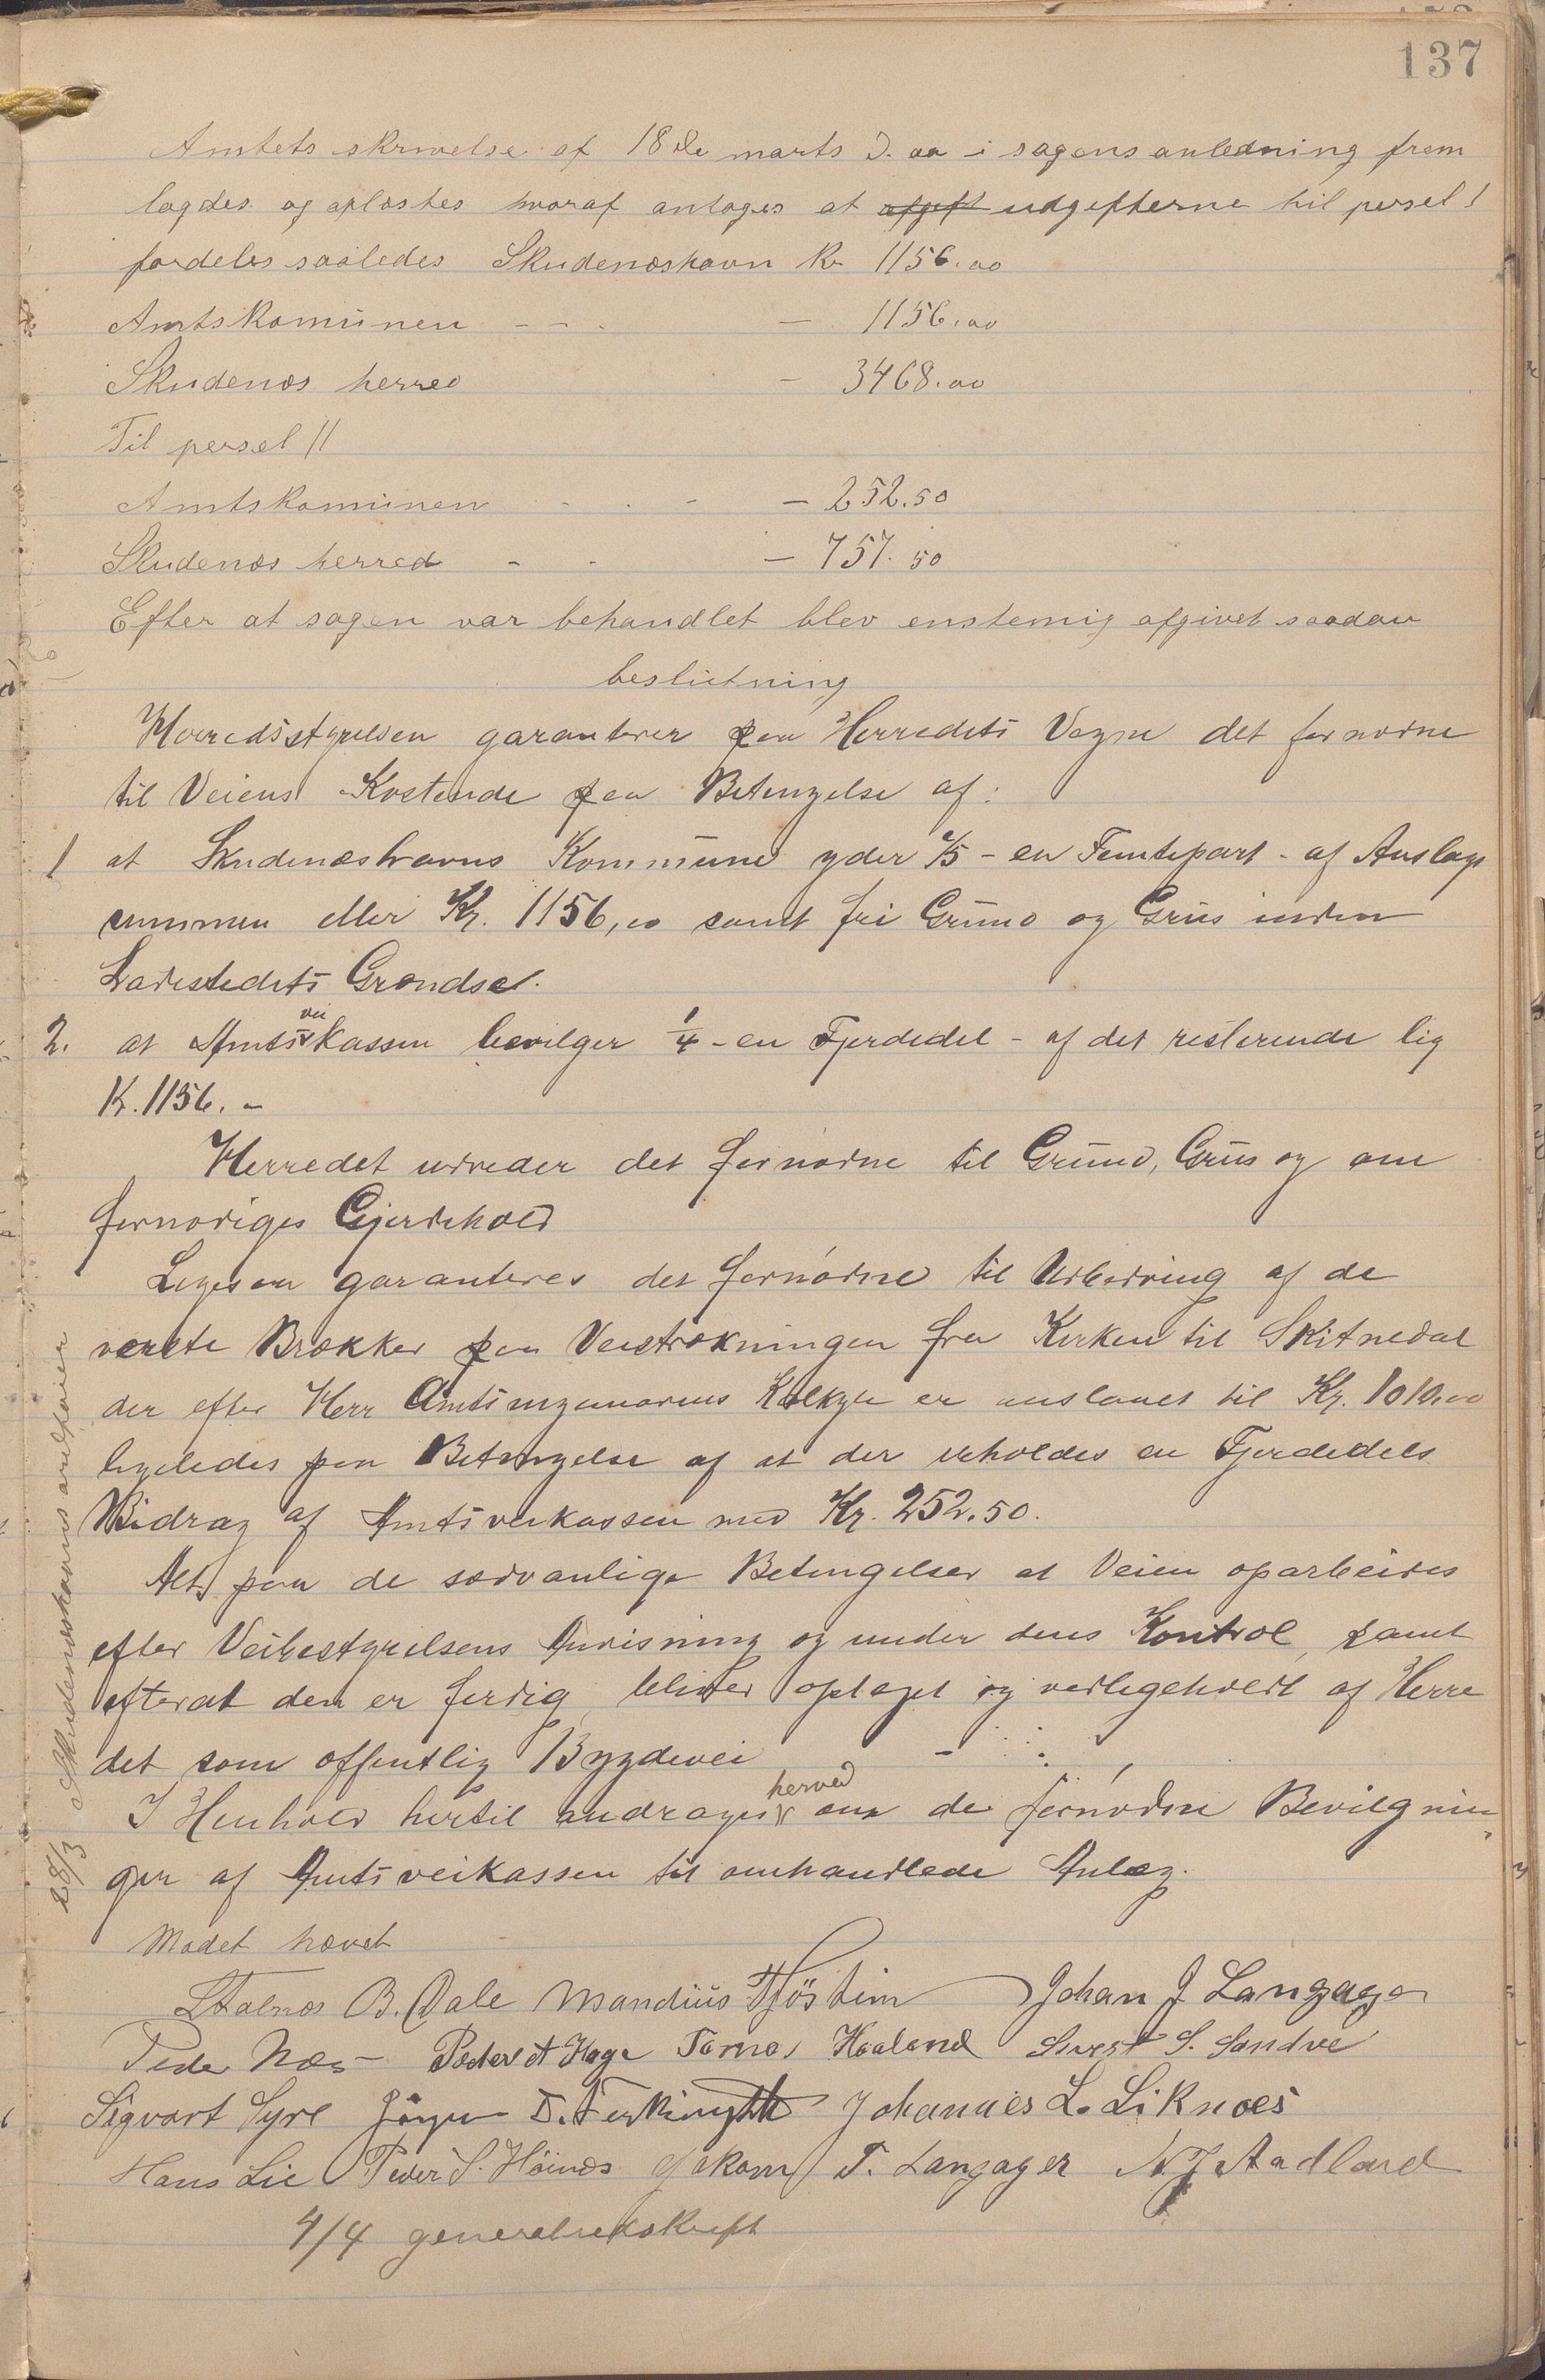 137
Amtets skrivelse af 18de marts d. aa i sagens anledning frem
lagdes og oplæstes hvoraf antages at afgift udgifterne til persel I
fordeles saaledes Skudeneshavn Kr 1156.00
Amtskomünen - - - — 1156.00
Skudenæs herred — 3468.00
Til persel II
Amtskomünen - - - — 252.50
Skudenæs herred - - — 757.50
Efter at sagen var behandlet blev enstemig afgivet saadan
beslutning
Herredsstyrelsen garanterer paa Herredets Vegne det fornødne
til Veiens Kostende paa Betingelse af:
1 at Skudenæshavns Kommüne yder 1/5 - en Femtepart - af Anslags
summen eller Kr. 1156,00 samt fri Gründ og Grüs inden
Ladestedets Grændse.
2. at Amtsveikassen bevilger 1/4 - en Fjerdedel - af det resterende lig
Kr. 1156. -
Herredet udreder det fornødne til Gründ, Grüs og om
fornødiges Gjerdehold
Ligesaa garanteres det fornødne til Udbedring af de
verste Brækker paa Veistrækningen fra Kirken til Skitnedal
der efter Herr Amtsingeniørens Kalkyle er anslaaet til Kr. 1010.00
ligeledes paa Betingelse af at der erholdes en Fjerdedels
Bidrag af Amtsveikassen med Kr. 252.50.
Alt paa de sædvanlige Betingelser at Veien oparbeides
efter Veibestyrelsens Anvisning og under dens Kontrol, samt
efterat den er ferdig, bliver optaget og vedligeholdt af Herre
det som offentlig Bygdevei
I Henhold hertil andrages herved om de fornødne Bevilgnin
ger af Amtsveikassen til omhandlede Anlæg.
Mødet hævet
Stalnæs B. Dale Mandiüs Tjöstein Johan J Langager
Peder Næs Peder A Hage Tørres Haaland Sivert S. Sandve
Sigvart Syre Jörgen D. Ferkingstad Johannes L. Liknæs
Hans Lie Peder S. Höines Jakom T. Langager N. J. Aadland
4/4 generaludskrift
28/3 Skudeneshavns